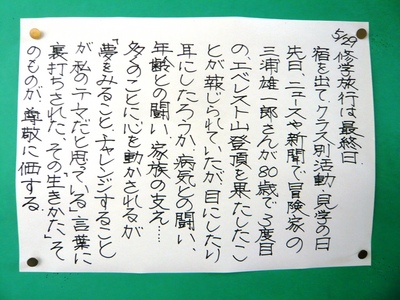 5/29 修学旅行は最終日
宿を出て、クラス別活動・見学の日
先日、ニュースや新聞で冒険家の
三浦雄一郎さんが80歳で3度目
の、エベレスト山登頂を果たしたこ
とが報じられていたが目にしたり
耳にしたろうか。病気との闘い、
年齢との闘い、家族の支え……
多くのことに心を動かされるが
「夢をみること・チャレンジすること
が私のテーマだと思っている」言葉に
裏打ちされた、その「生きかた」そ
のものが、尊敬に価する。